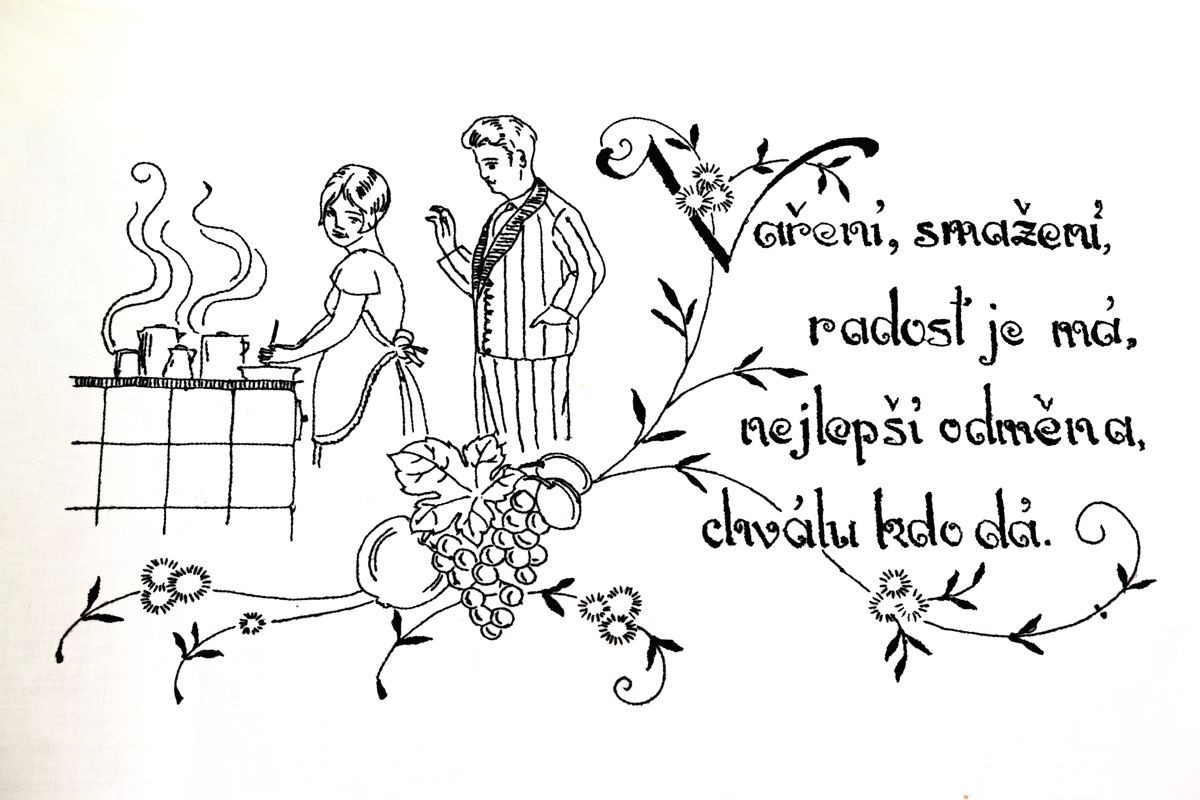 Vaření, smažení,
radosť je má,
nejlepší odměna,
chválu kdo dá.